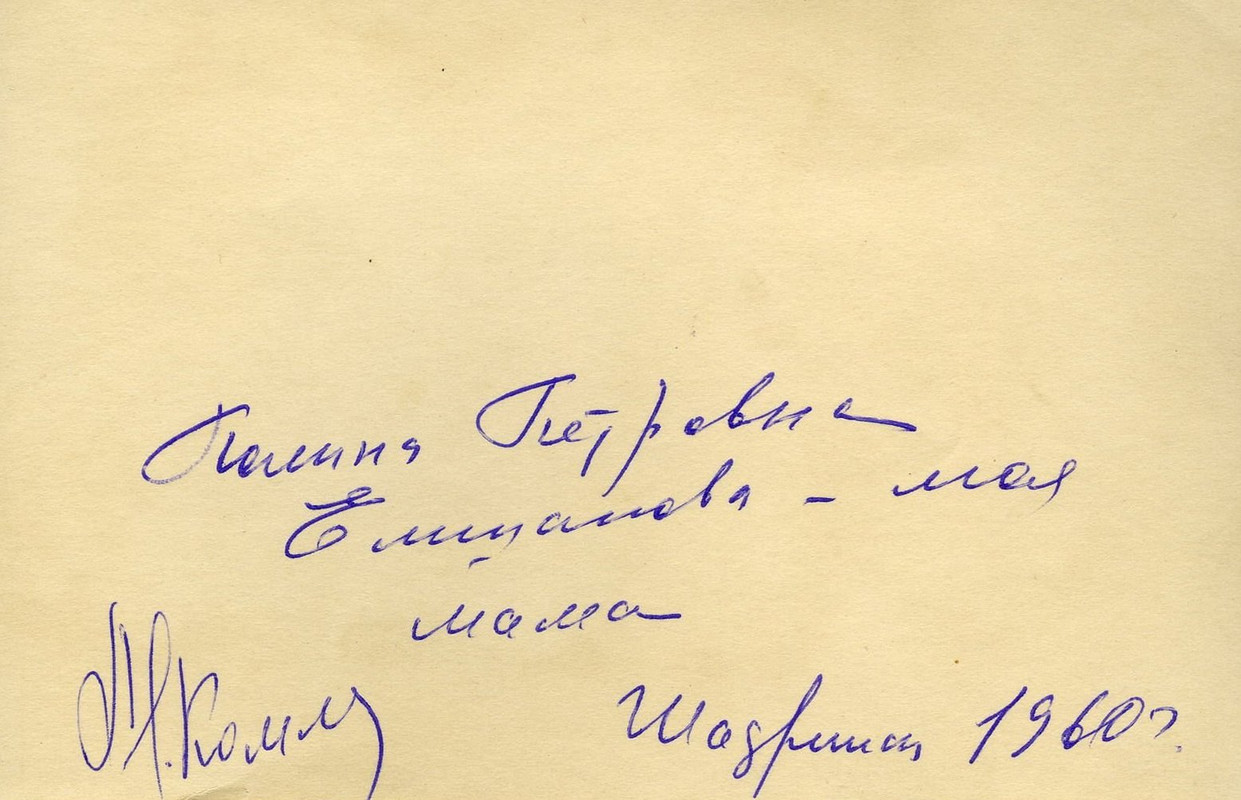 Полина Петровна
Емшанова - моя
мама
Шадринск 1960 г.